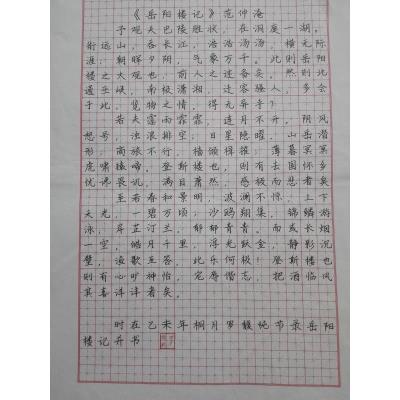 《岳阳楼记》范仲淹
予观夫巴陵胜状，在洞庭一湖，
衔远山，吞长江，浩浩汤汤，横无际
涯；朝晖夕阴，气象万千。此则岳阳
楼之大观也，前人之述备矣。然则北
通巫峡，南极潇湘，迁客骚人，多会
于此，览物之情，得无异乎？
若夫霪雨霏霏，连月不开，阴风
怒号，浊浪排空；日星隐曜，山岳潜
形；商旅不行，樯倾楫摧；薄暮冥冥，
虎啸猿啼。登斯楼也，则有去国怀乡，
忧谗畏讥，满目萧然，感极而悲者矣
至若春和景明，波澜不惊，上下
天光，一碧万顷；沙鸥翔集，锦鳞
泳，岸芷汀兰，郁郁青青。而或长烟
一空，皓月千里，浮光跃金，静影沉
璧，渔歌互答，此乐何极！登斯楼也
则有心旷神怡，宠辱偕忘，把酒临风
其喜洋洋者矣。
时在乙未年桐月罗馥纯节录岳阳
楼记并书